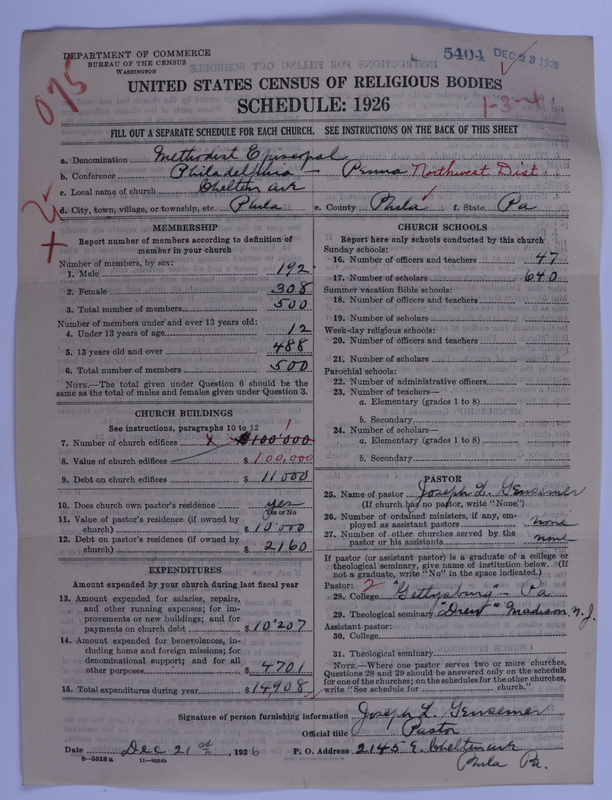 DEPARTMENT OF COMMERCE
BUREAU OF THE CENSUS
WASHINGTON
5404 DEC 23 1926
075
UNITED STATES CENSUS OF RELIGIOUS BODIES
SCHEDULE: 1926
1-3-4
FILL OUT A SEPARATE SCHEDULE FOR EACH CHURCH. SEE INSTRUCTIONS ON THE BACK OF THIS SHEET
a. Denomination Methodist Episcopal
b. Conference Philadelphia — Penna Northwest Dist
c. Local name of church Chelten Ave
d. City, town, village, or township, etc. Phila e. County Phila f. State Pa
MEMBERSHIP
Report number of members according to definition of member in your church
Number of members, by sex:
1. Male 192
2. Female 308
3. Total number of members 500
Number of members under and over 13 years old:
4. Under 13 years of age 12
5. 13 years old and over 488
6. Total number of members 500
NOTE.—The total given under Question 6 should be the
same as the total of males and females given under Question 3.
CHURCH BUILDINGS
See instructions, paragraphs 10 to 12
7. Number of church edifices x $100'000 1
8. Value of church edifices $ 100,000
9. Debt on church edifices $ 11000
10. Does church own pastor's residence yes
Yes or No
11. Value of pastor's residence (if owned by
church) $ 10'000
12. Debt on pastor's residence (if owned by
church) $ 2160
EXPENDITURES
Amount expended by your church during last fiscal year
13. Amount expended for salaries, repairs,
and other running expenses; for im-
provements or new buildings; and for
payments on church debt $ 10'207
14. Amount expended for benevolences, in-
cluding home and foreign missions; for
denominational support; and for all
other purposes $ 4701
15. Total expenditures during year $ 14908
CHURCH SCHOOLS
Report here only schools conducted by this church
Sunday schools:
16. Number of officers and teachers 47
17. Number of scholars 640
Summer vacation Bible schools:
18. Number of officers and teachers
19. Number of scholars
Week-day religious schools:
20. Number of officers and teachers
21. Number of scholars
Parochial schools:
22. Number of administrative officers
23. Number of teachers—
a. Elementary (grades 1 to 8)
b. Secondary
24. Number of scholars—
a. Elementary (grades 1 to 8)
b. Secondary
PASTOR
25. Name of pastor Joseph L. Gensemer
(If church has no pastor, write "None")
26. Number of ordained ministers, if any, em-
ployed as assistant pastors none
27. Number of other churches served by the
pastor or his assistants none
If pastor (or assistant pastor) is a graduate of a college or
theological seminary, give name of institution below. (If
not a graduate, write "No" in the space indicated.)
Pastor: 2
28. College "Gettysburg" - Pa
29. Theological seminary "Drew" Madison, N.J.
Assistant pastor:
30. College
31. Theological seminary
NOTE.—Where one pastor serves two or more churches,
Questions 28 and 29 should be answered only on the schedule
for one of the churches; on the schedules for the other churches,
write "See schedule for church."
Signature of person furnishing information Joseph L. Gensemer
Official title Pastor
Date Dec 21st, 1926 P. O. Address 2145 E. Chelten Ave
Phila Pa.
8—5518a 11—9064b